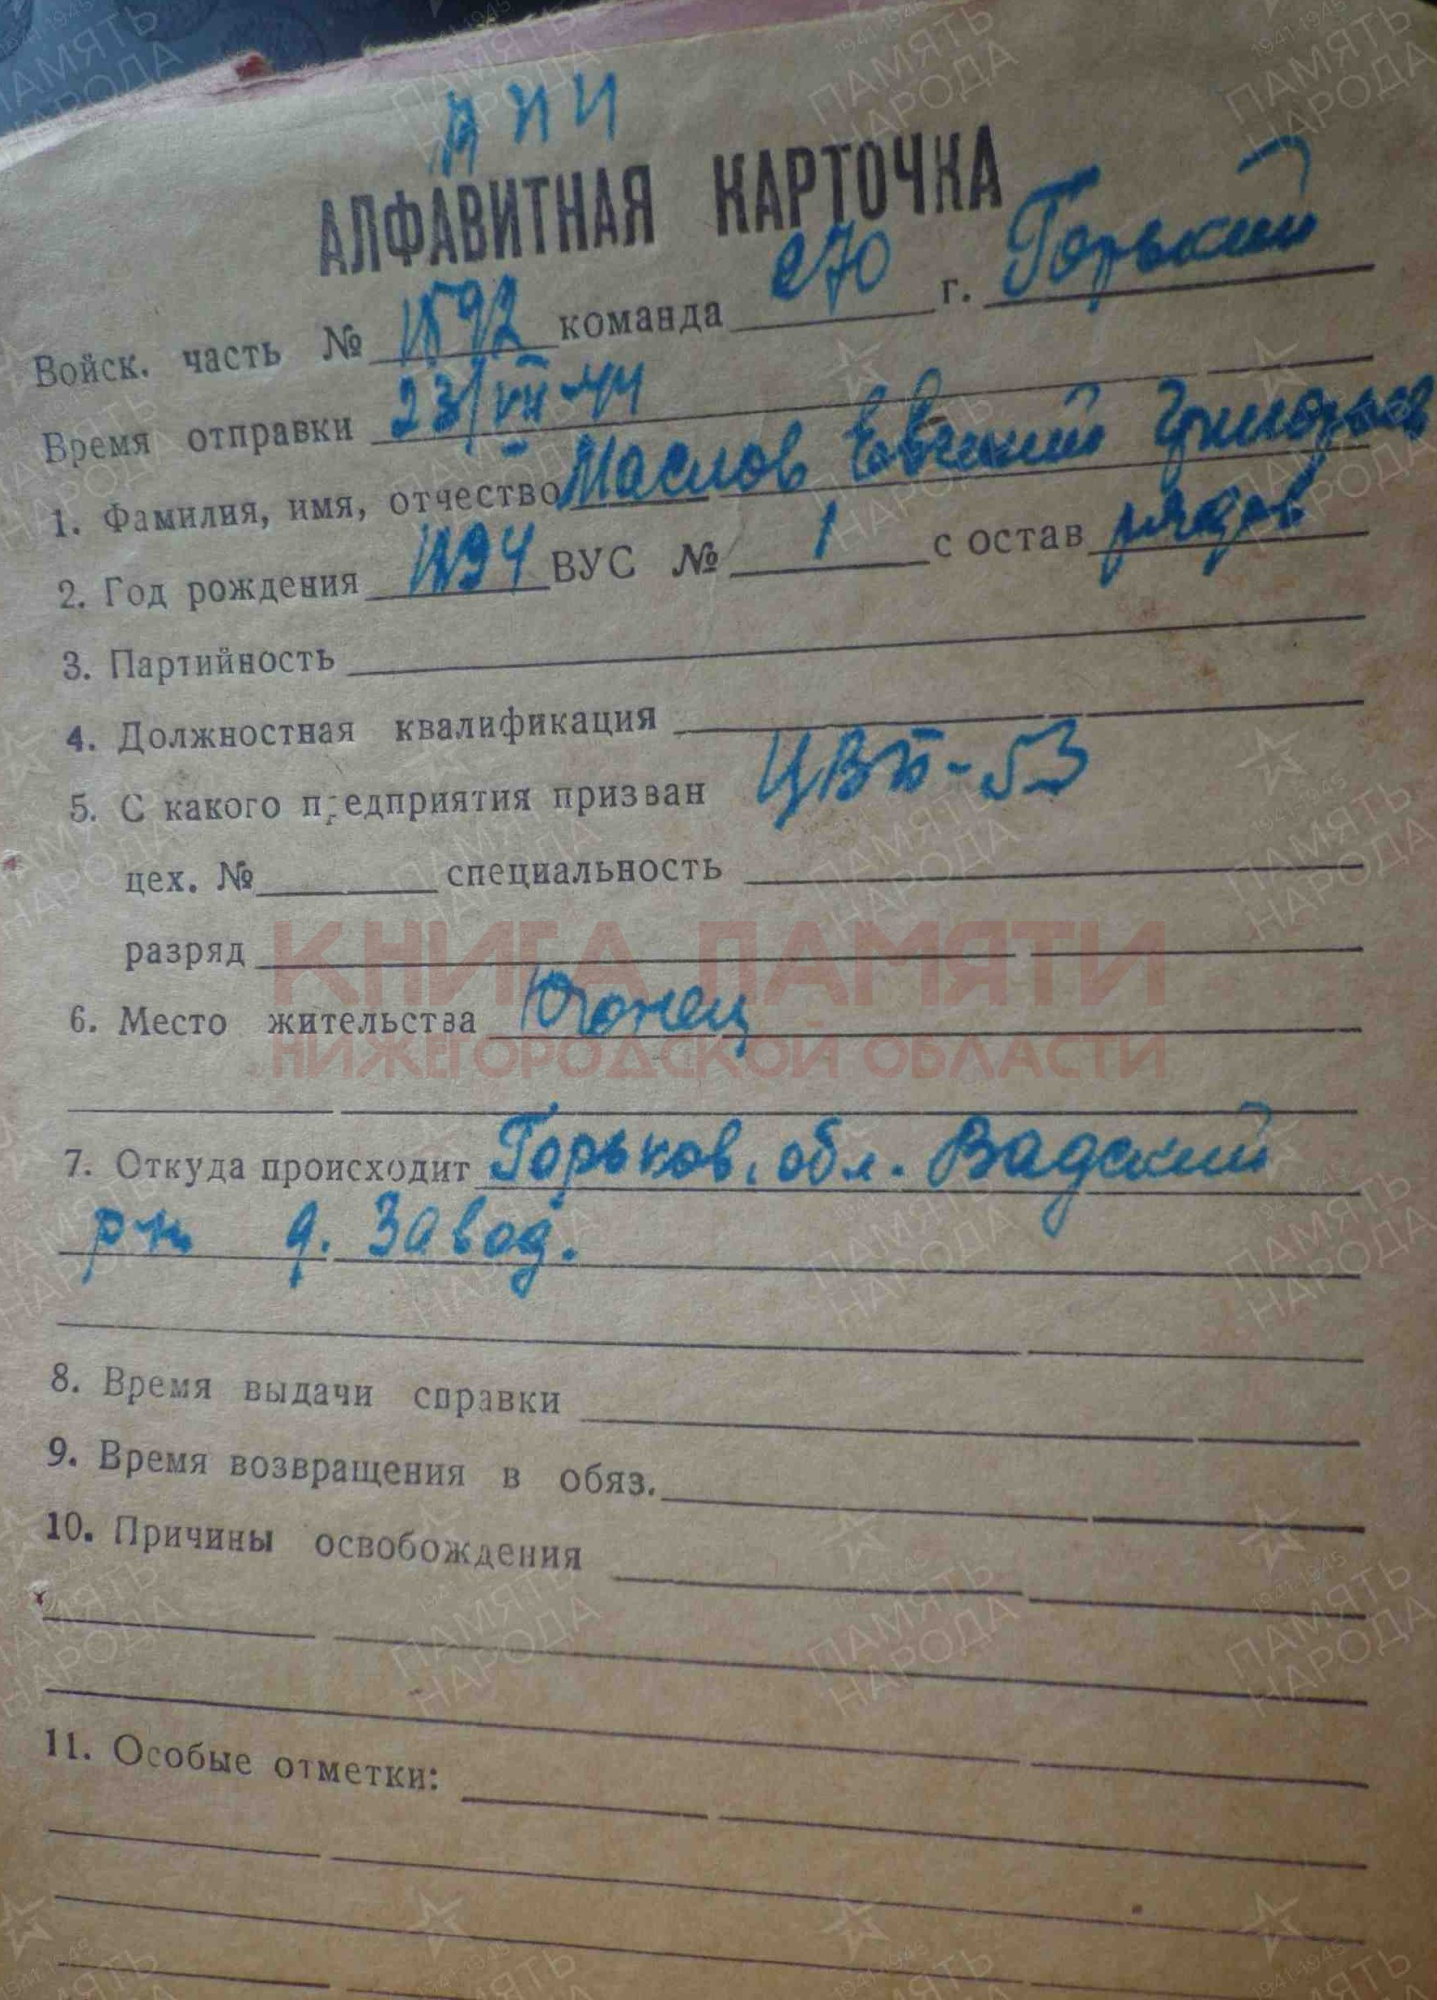 АЛФАВИТНАЯ КАРТОЧКА
Войск. часть № 1592 команда 270 г. Горький
Время отправки 23/VII-41
1. Фамилия, имя, отчество Маслов Евгений
2. Год рождения 1894 ВУС № 1 состав рядов
3. Партийность
4. Должностная квалификация
5. С какого предприятия призван ЦВТ-53
цех. № специальность
разряд
КНИГА ПАМЯТИ
6. Место жительства Юганец
НИЖЕГОРОДСКОЙ ОБЛАСТИ
7. Откуда происходит Горьков. обл. Вадский
р-н д. Завод.
8. Время выдачи справки
9. Время возвращения в обяз.
10. Причины освобождения
11. Особые отметки: